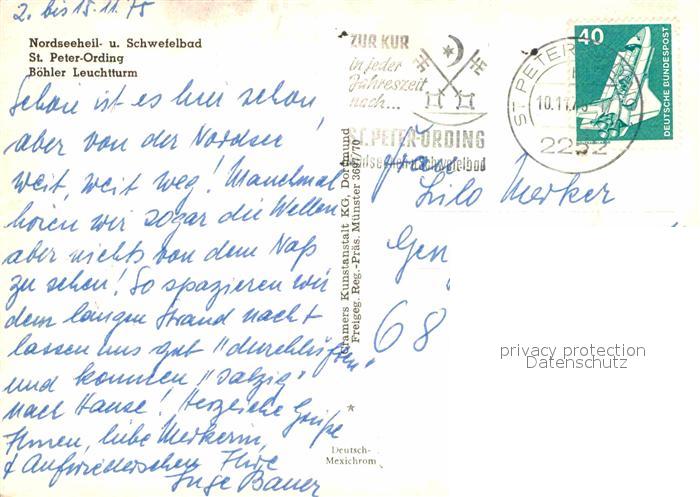 2. bis 15.11.75
Nordseeheil- u. Schwefelbad
St. Peter-Ording
Böhler Leuchtturm
Schön ist es hier schon,
aber von der Nordsee
weit, weit weg! Manchmal
hören wir sogar die Wellen
aber nichts von dem Naß
zu sehen! So spazieren wir
dem langen Strand nach
lassen uns gut "durchlüften"
und kommen "salzig"
nach Hause! Herzliche Grüße
Ihnen, liebe Merkerin,
& Aufwiedersehen Ihre
Inge Bauer
Cramers Kunstanstalt KG, Dortmund
Freigeg. Reg.-Präs. Münster
*
Deutsch-
Mexichrom
ZUR KUR
in jeder
Jahreszeit
nach...
ST. PETER-ORDING
Nordseeheil- Schwefelbad
ST PETER
10.11.75
2252
40
DEUTSCHE BUNDESPOST
Frau
Lilo Merker
Gen
68
privacy protection
Datenschutz